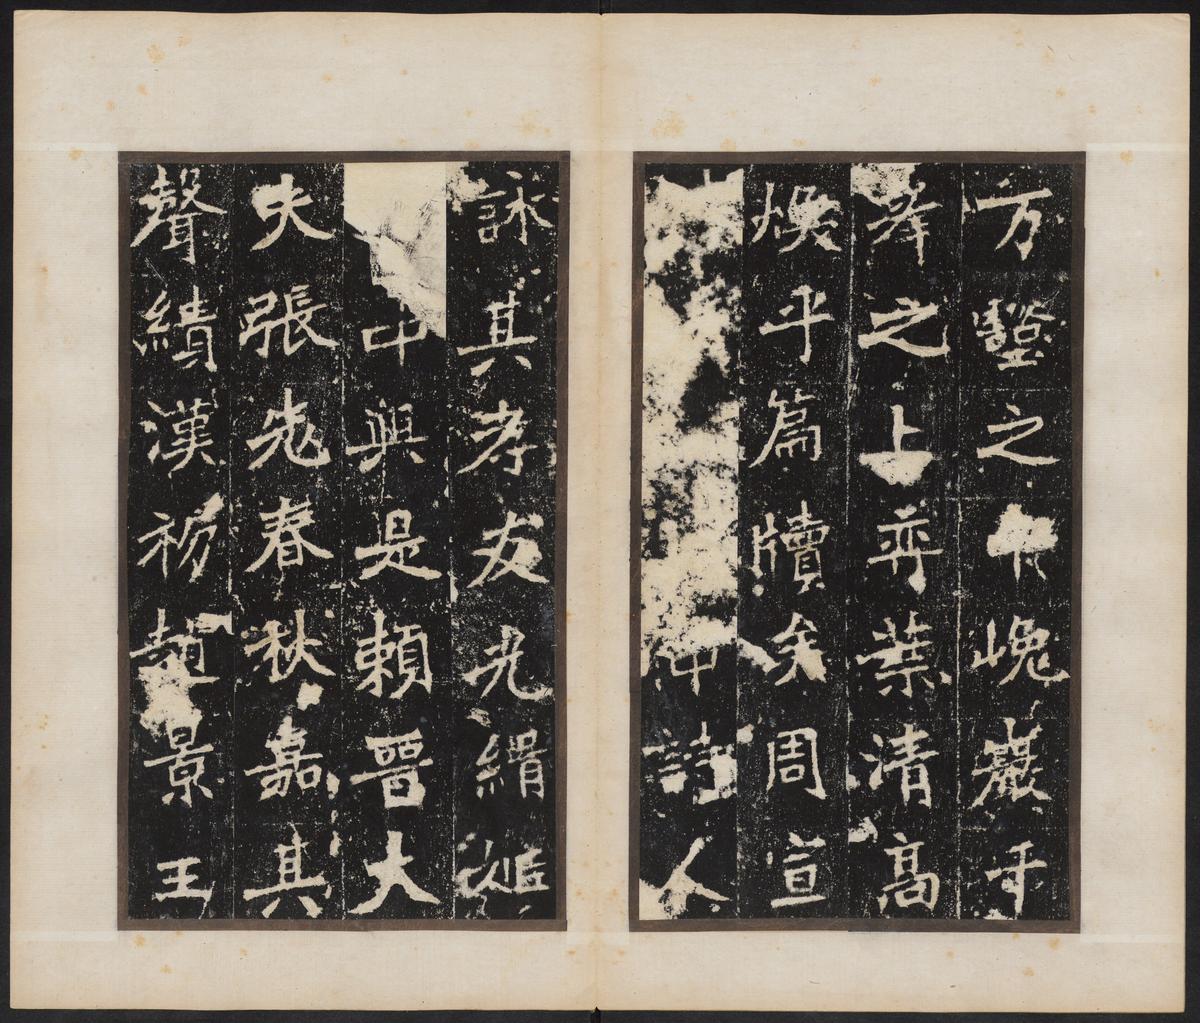 方壑之下巖千
峯之上弈葉清高
煥乎篇牘矣周宣
中詩人
詠其孝友光緝姬
中興是賴晉大
夫張老春秋嘉其
聲績漢初趙景王